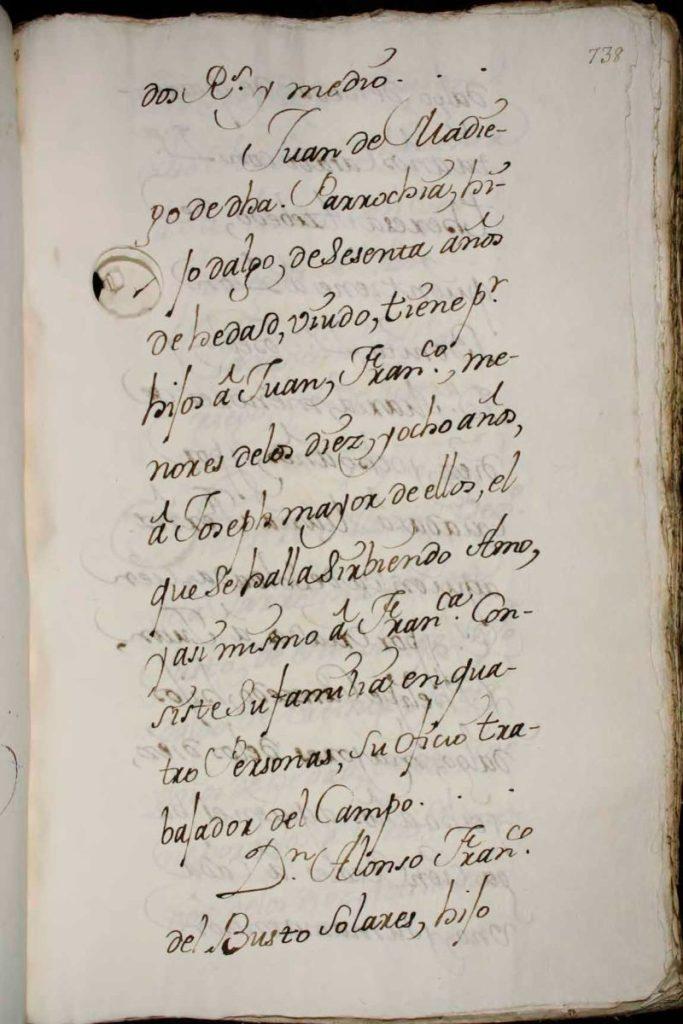 738
dos R.s y medio.
Juan de Madie-
go de dha. Parrochia, hi-
jo dalgo, de Sesenta años
de hedad, viudo, tiene p.r
hijos á Juan, Fran.co, me-
nores delos diez, y ocho años,
á Joseph mayor de ellos, el
que Se halla Sirbiendo Amo,
y asi mismo á Fran.ca Con-
siste Su familia en qua-
tro Personas, Su oficio tra-
bajador del Campo.
D.n Alonso Fran.co
del Busto Solares, hijo